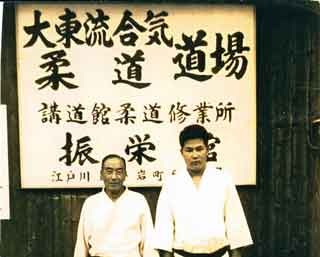 大東流合気
柔道 道場
講道館柔道修業所
振栄館
江戸川 岩町